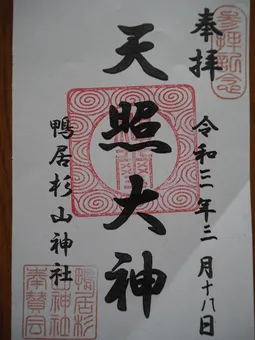 参拝記念
奉拝
令和三年三月十八日
天照大神
鴨居杉山神社
鴨居杉
山神社
奉賛会